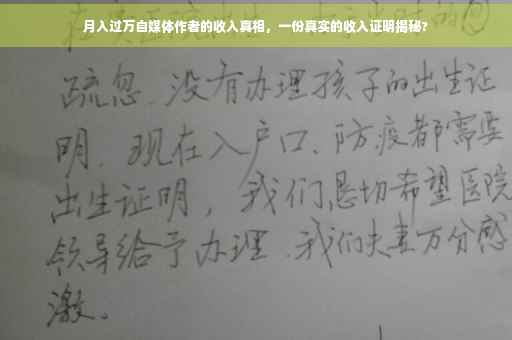 月入过万自媒体作者的收入真相，一份真实的收入证明揭秘?
疏忽、没有办理孩子的出生证
明、现在入户口、防疫都需要
出生证明，我们恳切希望医院
领导给予办理、我们夫妻万分感
激。